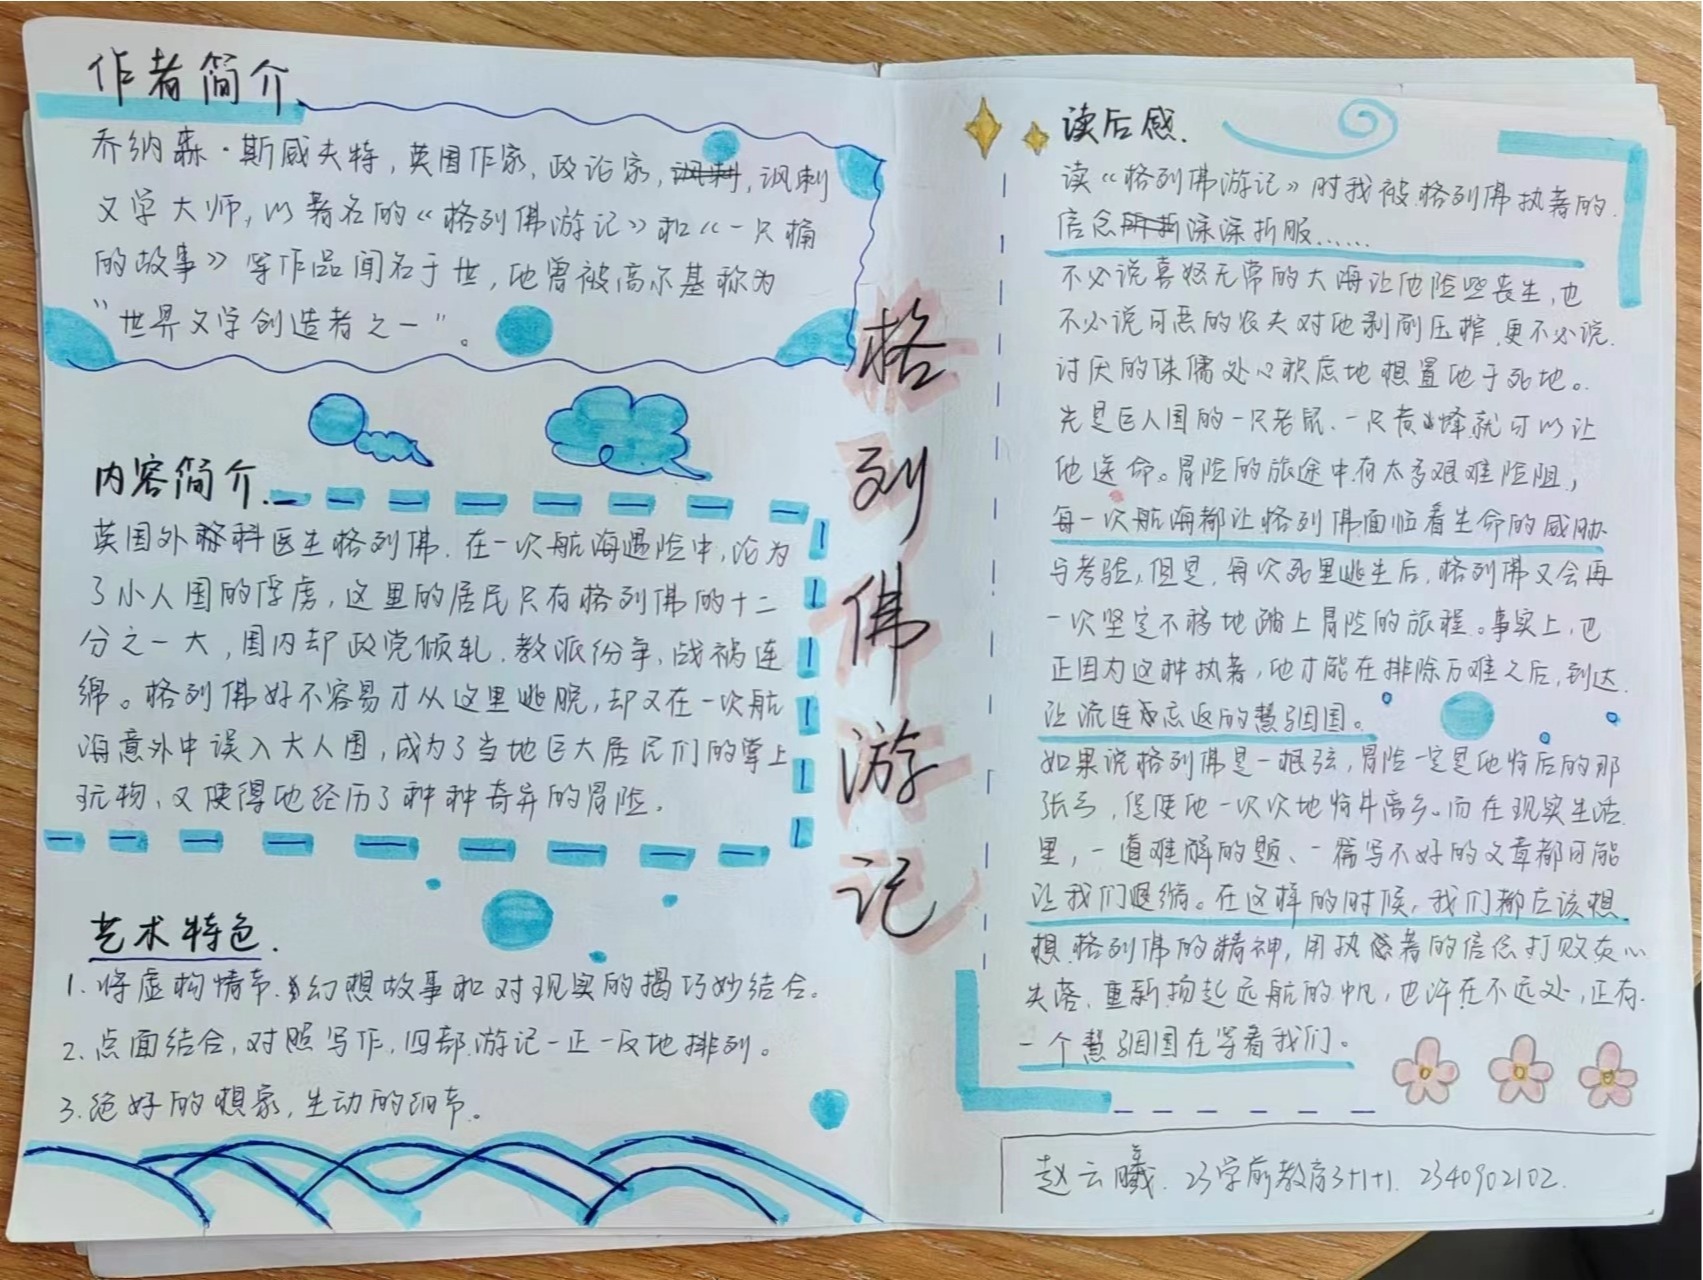 作者简介
乔纳森·斯威夫特,英国作家,政论家,讽刺,讽刺
文学大师,以著名的《格列佛游记》和《一只桶
的故事》等作品闻名于世,他曾被高尔基称为
“世界文学创造者之一”。
内容简介.
英国外科医生格列佛.在一次航海遇险中,沦为
了小人国的俘虏,这里的居民只有格列佛的十二
分之一大,国内却政党倾轧.教派纷争,战祸连
绵。格列佛好不容易才从这里逃脱,却又在一次航
海意外中误入大人国,成为了当地巨大居民们的掌上
玩物、又使得他经历了种种奇异的冒险。
艺术特色.
1.将虚构情节.幻想故事和对现实的揭巧妙结合。
2.点面结合,对照写作,四部.游记一正一反地排列。
3.绝好的想象,生动的细节。
格列佛游记
读后感.
读《格列佛游记》时我被.格列佛执著的.
信念所折深深折服......
不必说喜怒无常的大海让他险些丧生,也
不必说可恶的农夫对他剥削压榨.更不必说.
讨厌的侏儒处心积虑地想置他于死地。
先是巨人国的一只老鼠.一只黄蜂就可以让
他送命。冒险的旅途中有太多艰难险阻,
每一次航海都让格列佛面临着生命的威胁
与考验,但是,每次死里逃生后,格列佛又会再
一次坚定不移地踏上冒险的旅程。事实上,也
正因为这种执著,他才能在排除万难之后,到达.
让流连忘返的慧骃国。
如果说格列佛是一根弦,冒险一定是他背后的那
张弓,促使他一次次地背井离乡。而在现实生活.
里,一道难解的题、一篇写不好的文章都可能
让我们退缩。在这样的时候,我们都应该想.
想.格列佛的精神,用执著的信念打败灰心
失落.重新扬起远航的帆,也许在不远处,正有.
一个慧骃国在等着我们。
赵云曦.23学前教育3+1+1.2340902102.